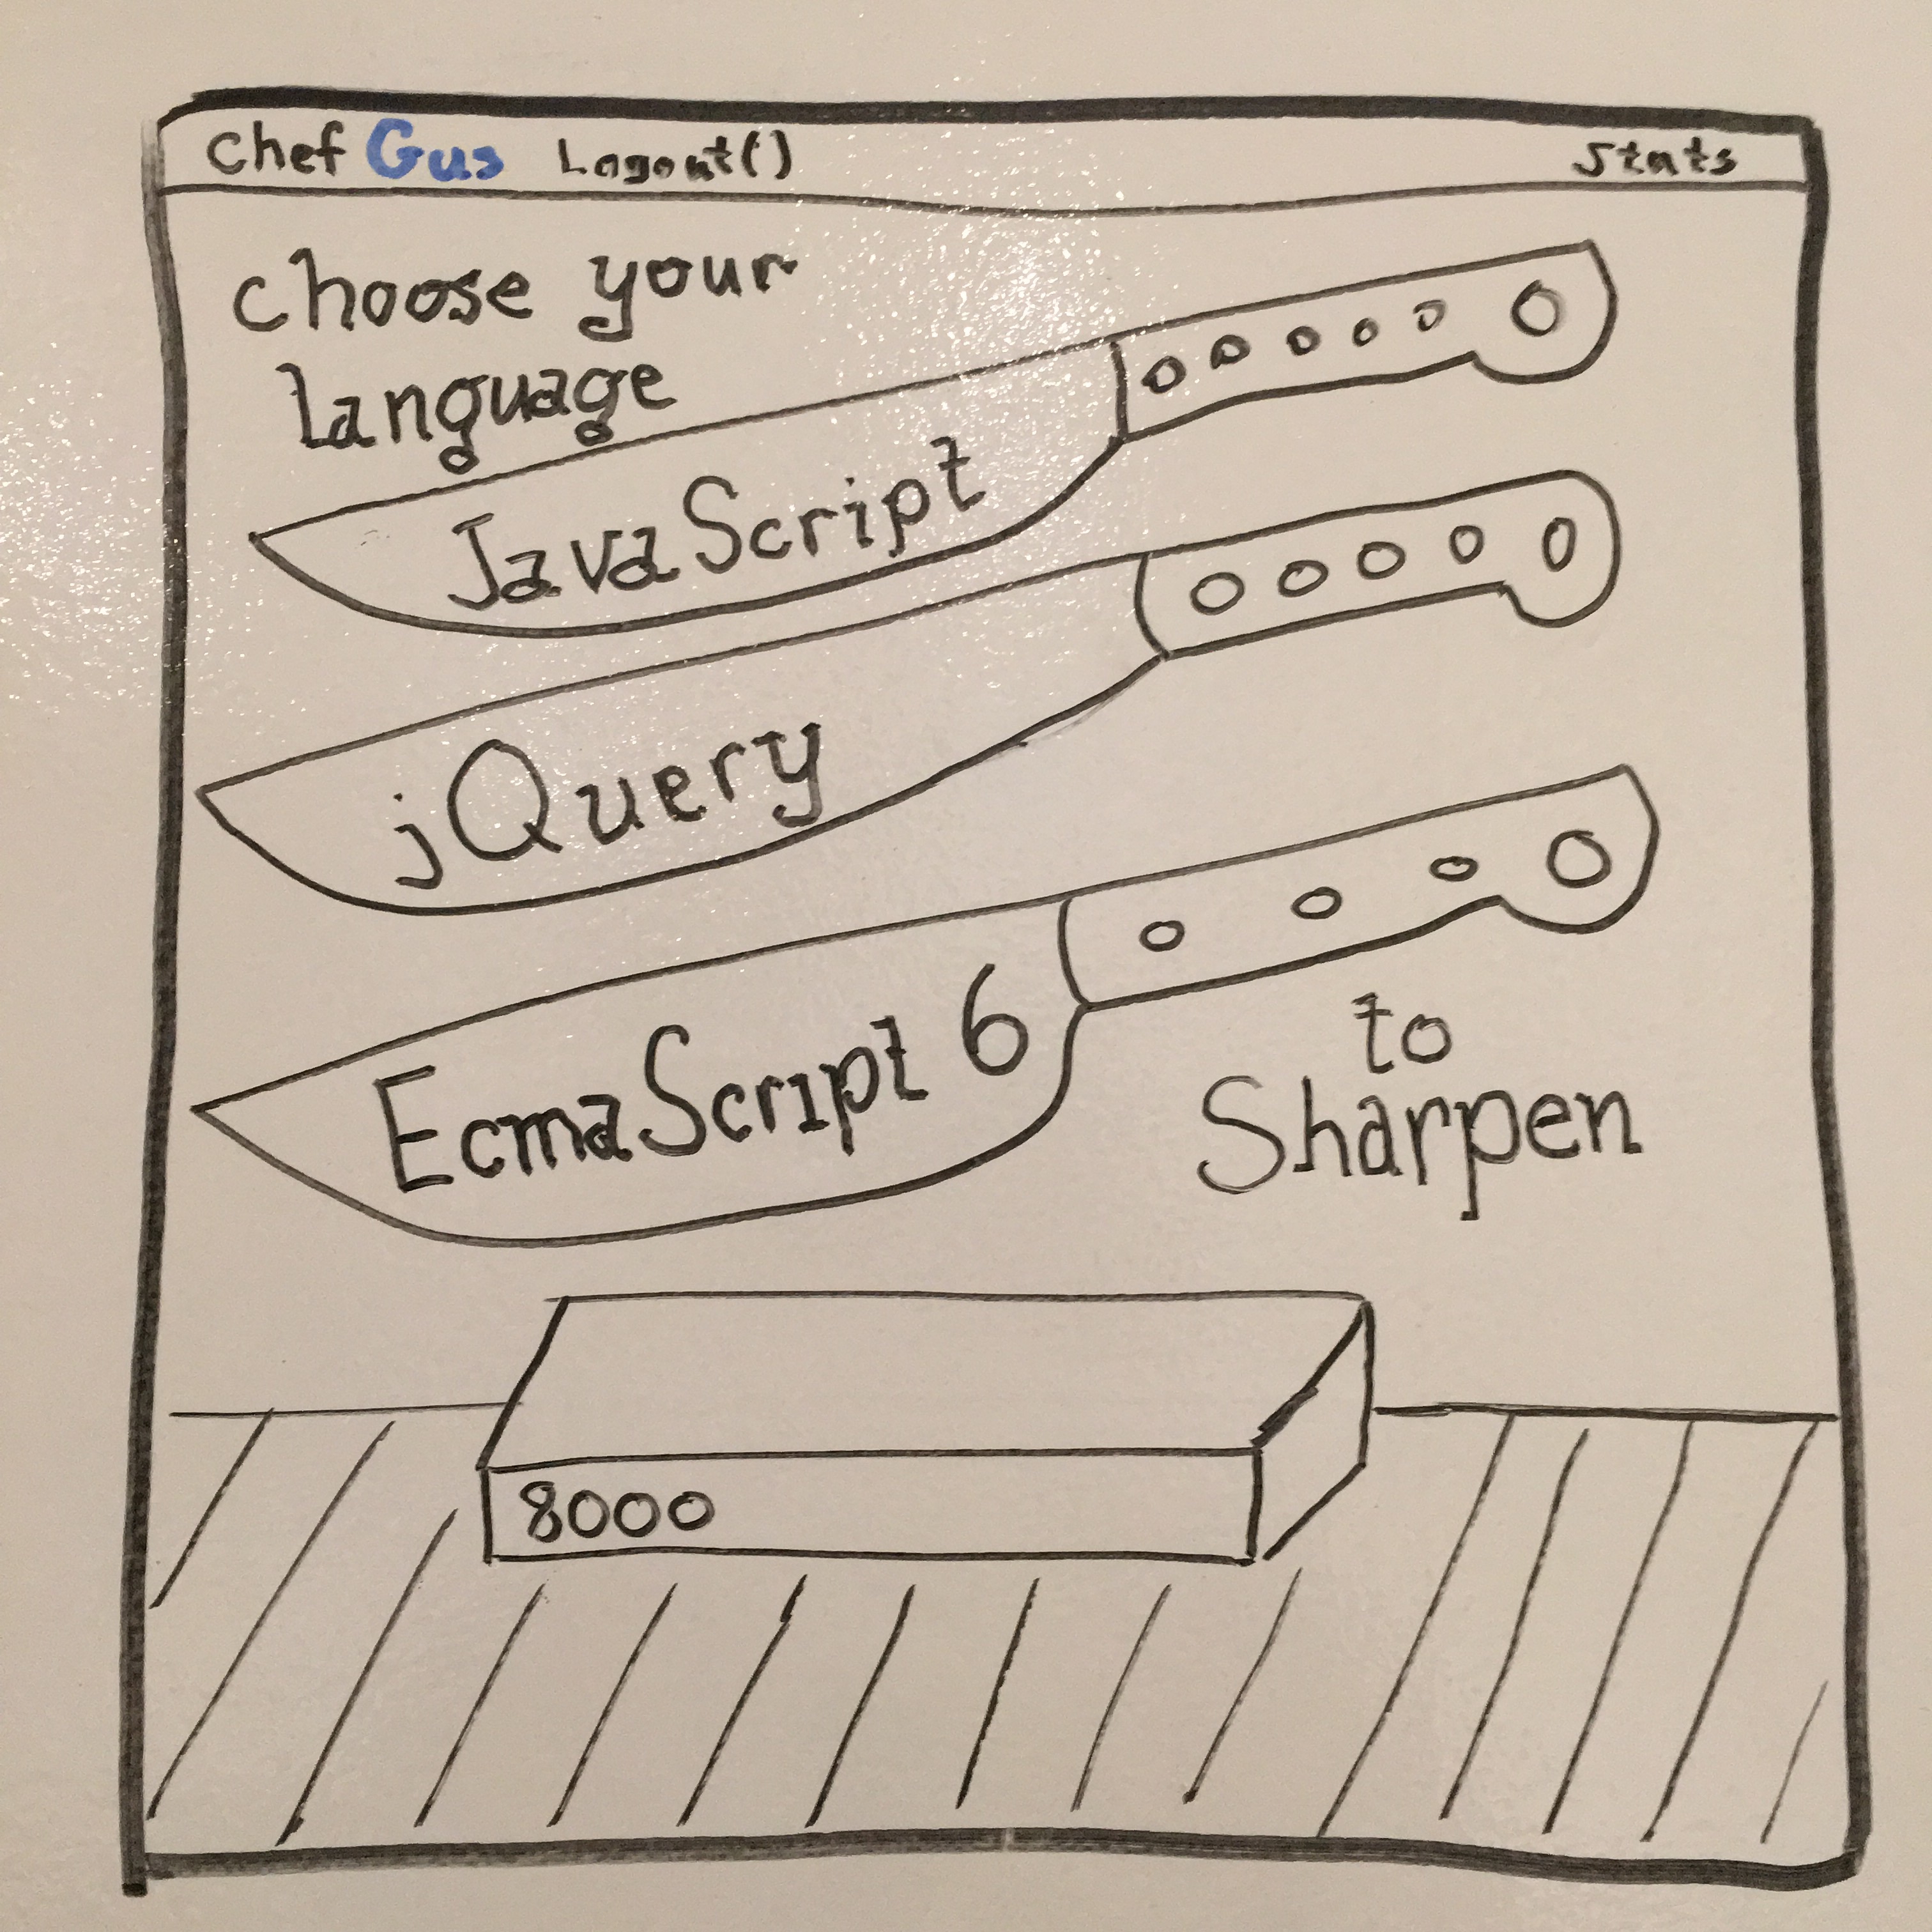 Chef Gus Logout() Stats
choose your
language
JavaScript
jQuery
EcmaScript 6
to
Sharpen
8000